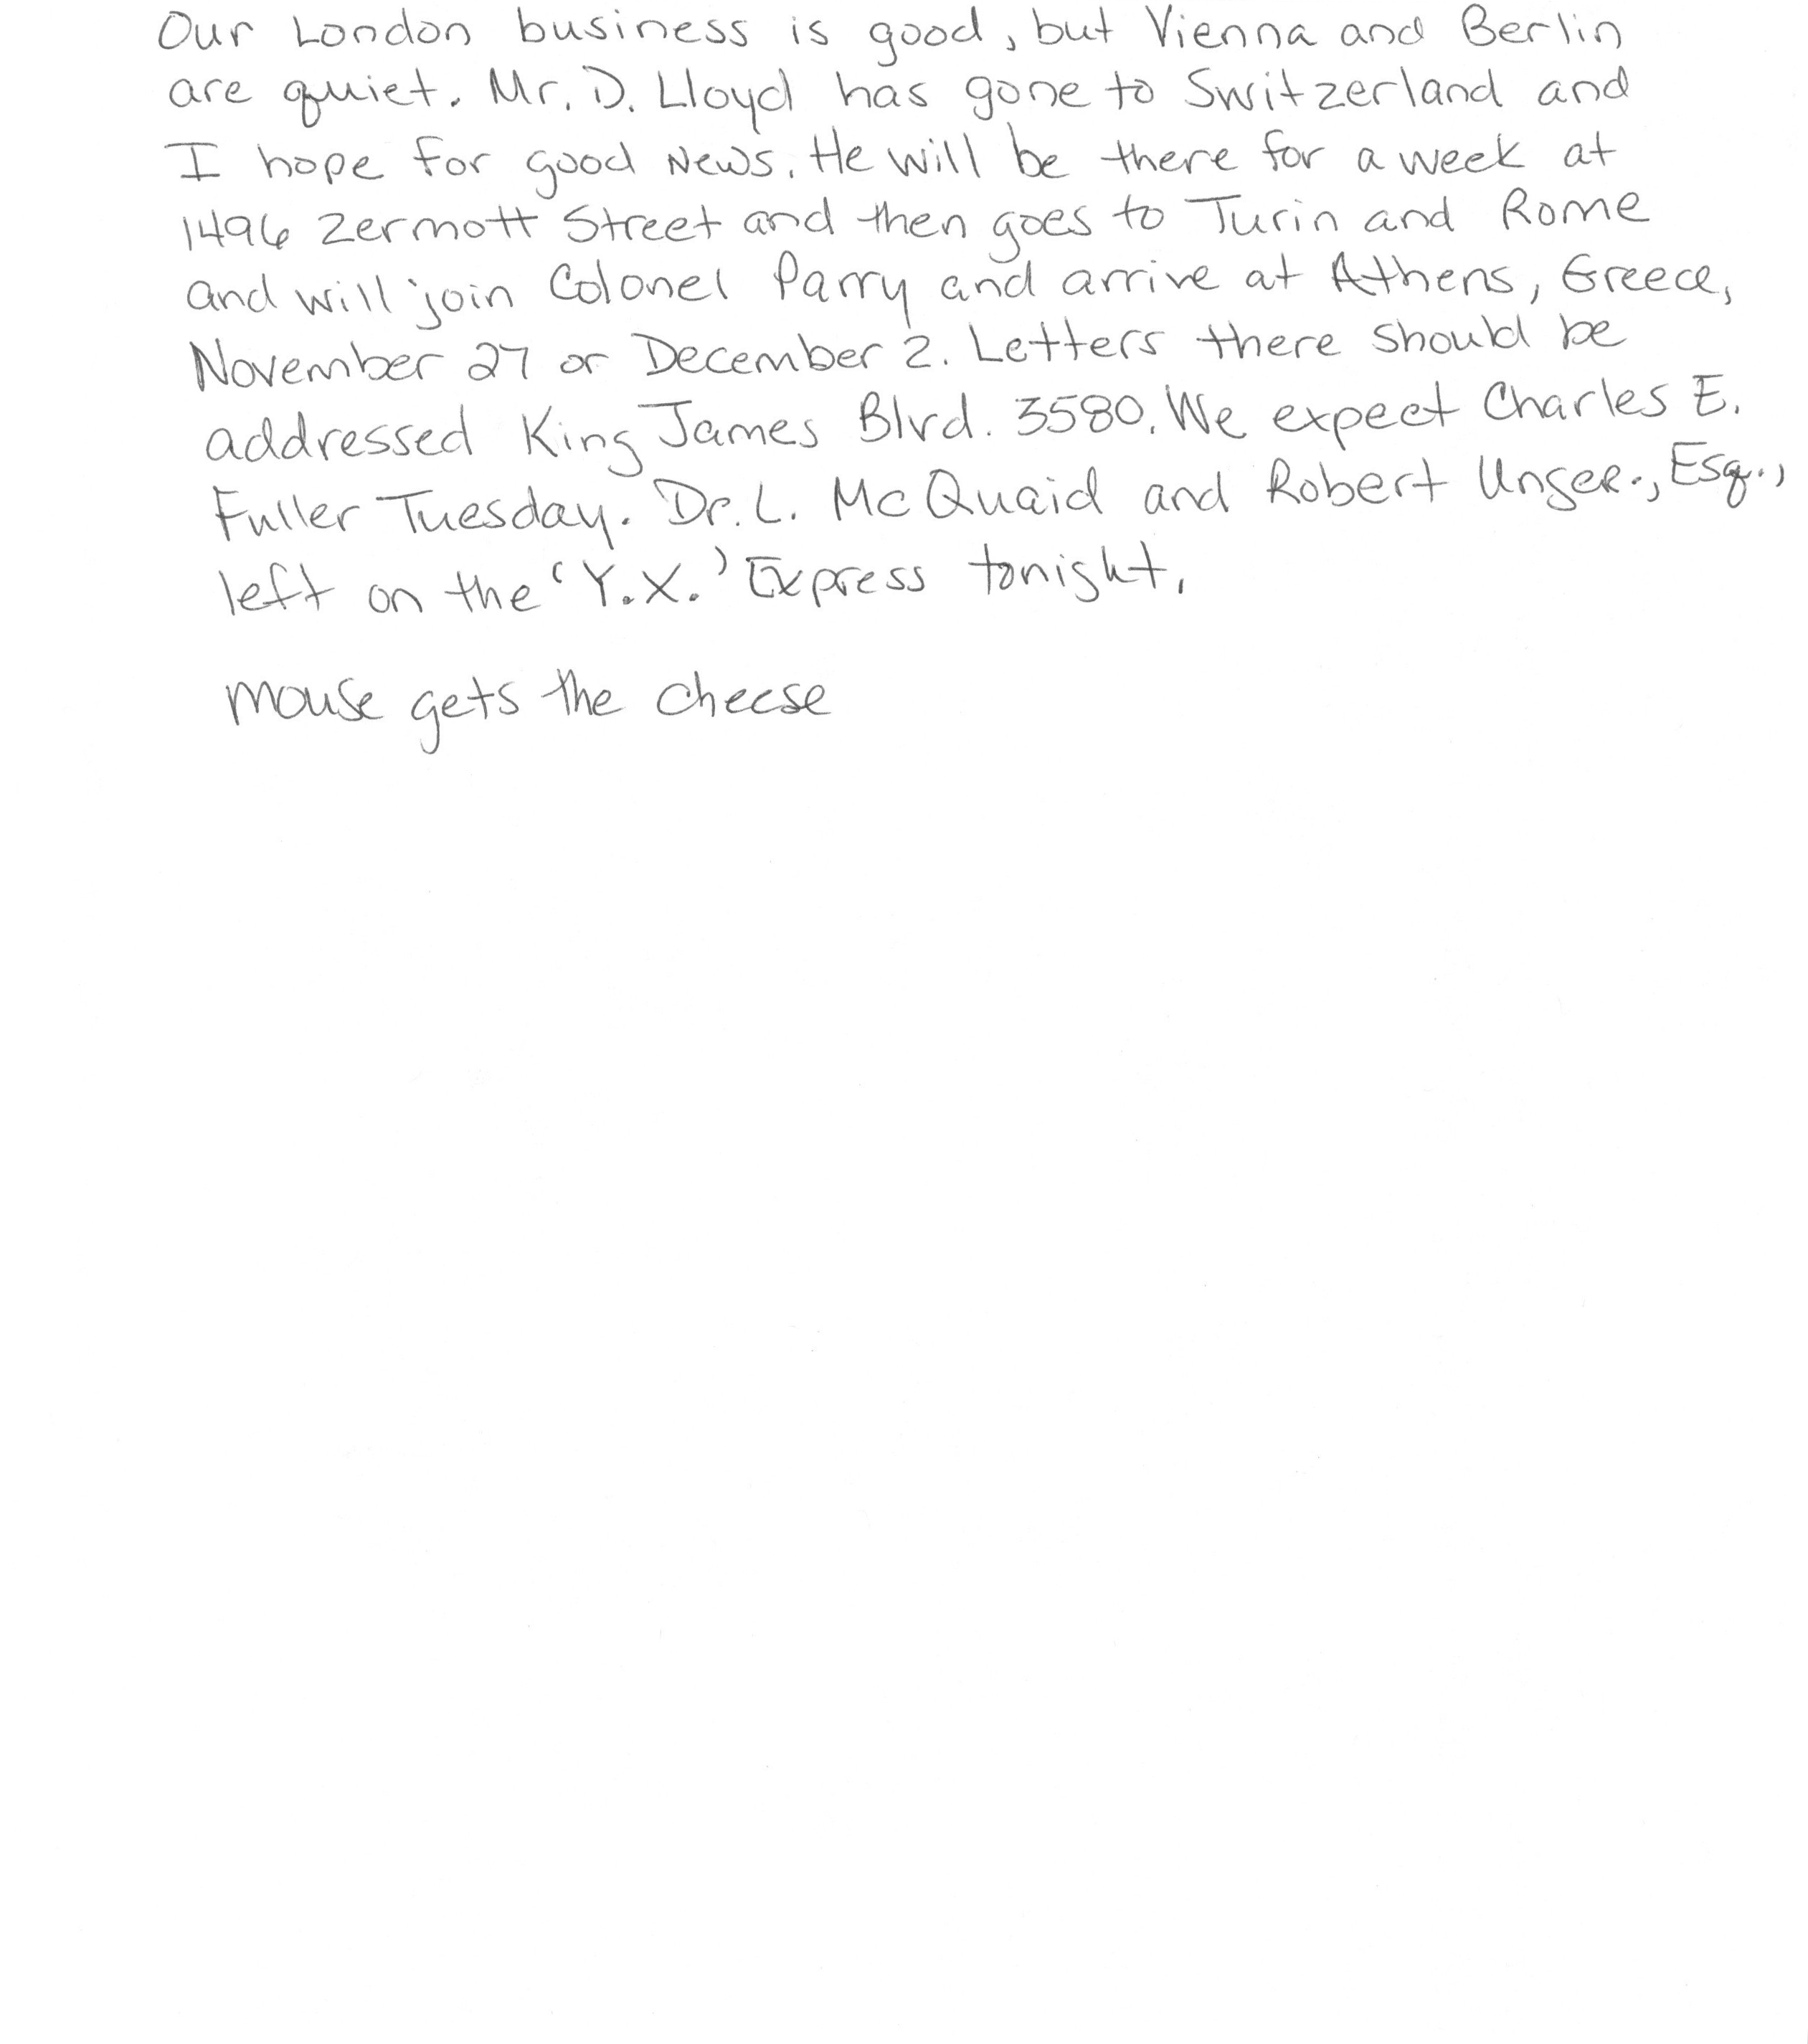 Our London business is good, but Vienna and Berlin
are quiet. Mr. D. Lloyd has gone to Switzerland and
I hope for good news. He will be there for a week at
1496 Zermott Street and then goes to Turin and Rome
and will join Colonel Parry and arrive at Athens, Greece,
November 27 or December 2. Letters there should be
addressed King James Blvd. 3580. We expect Charles E.
Fuller Tuesday. Dr. L. McQuaid and Robert Unger., Esq.,
left on the 'Y.X.' Express tonight.
mouse gets the cheese